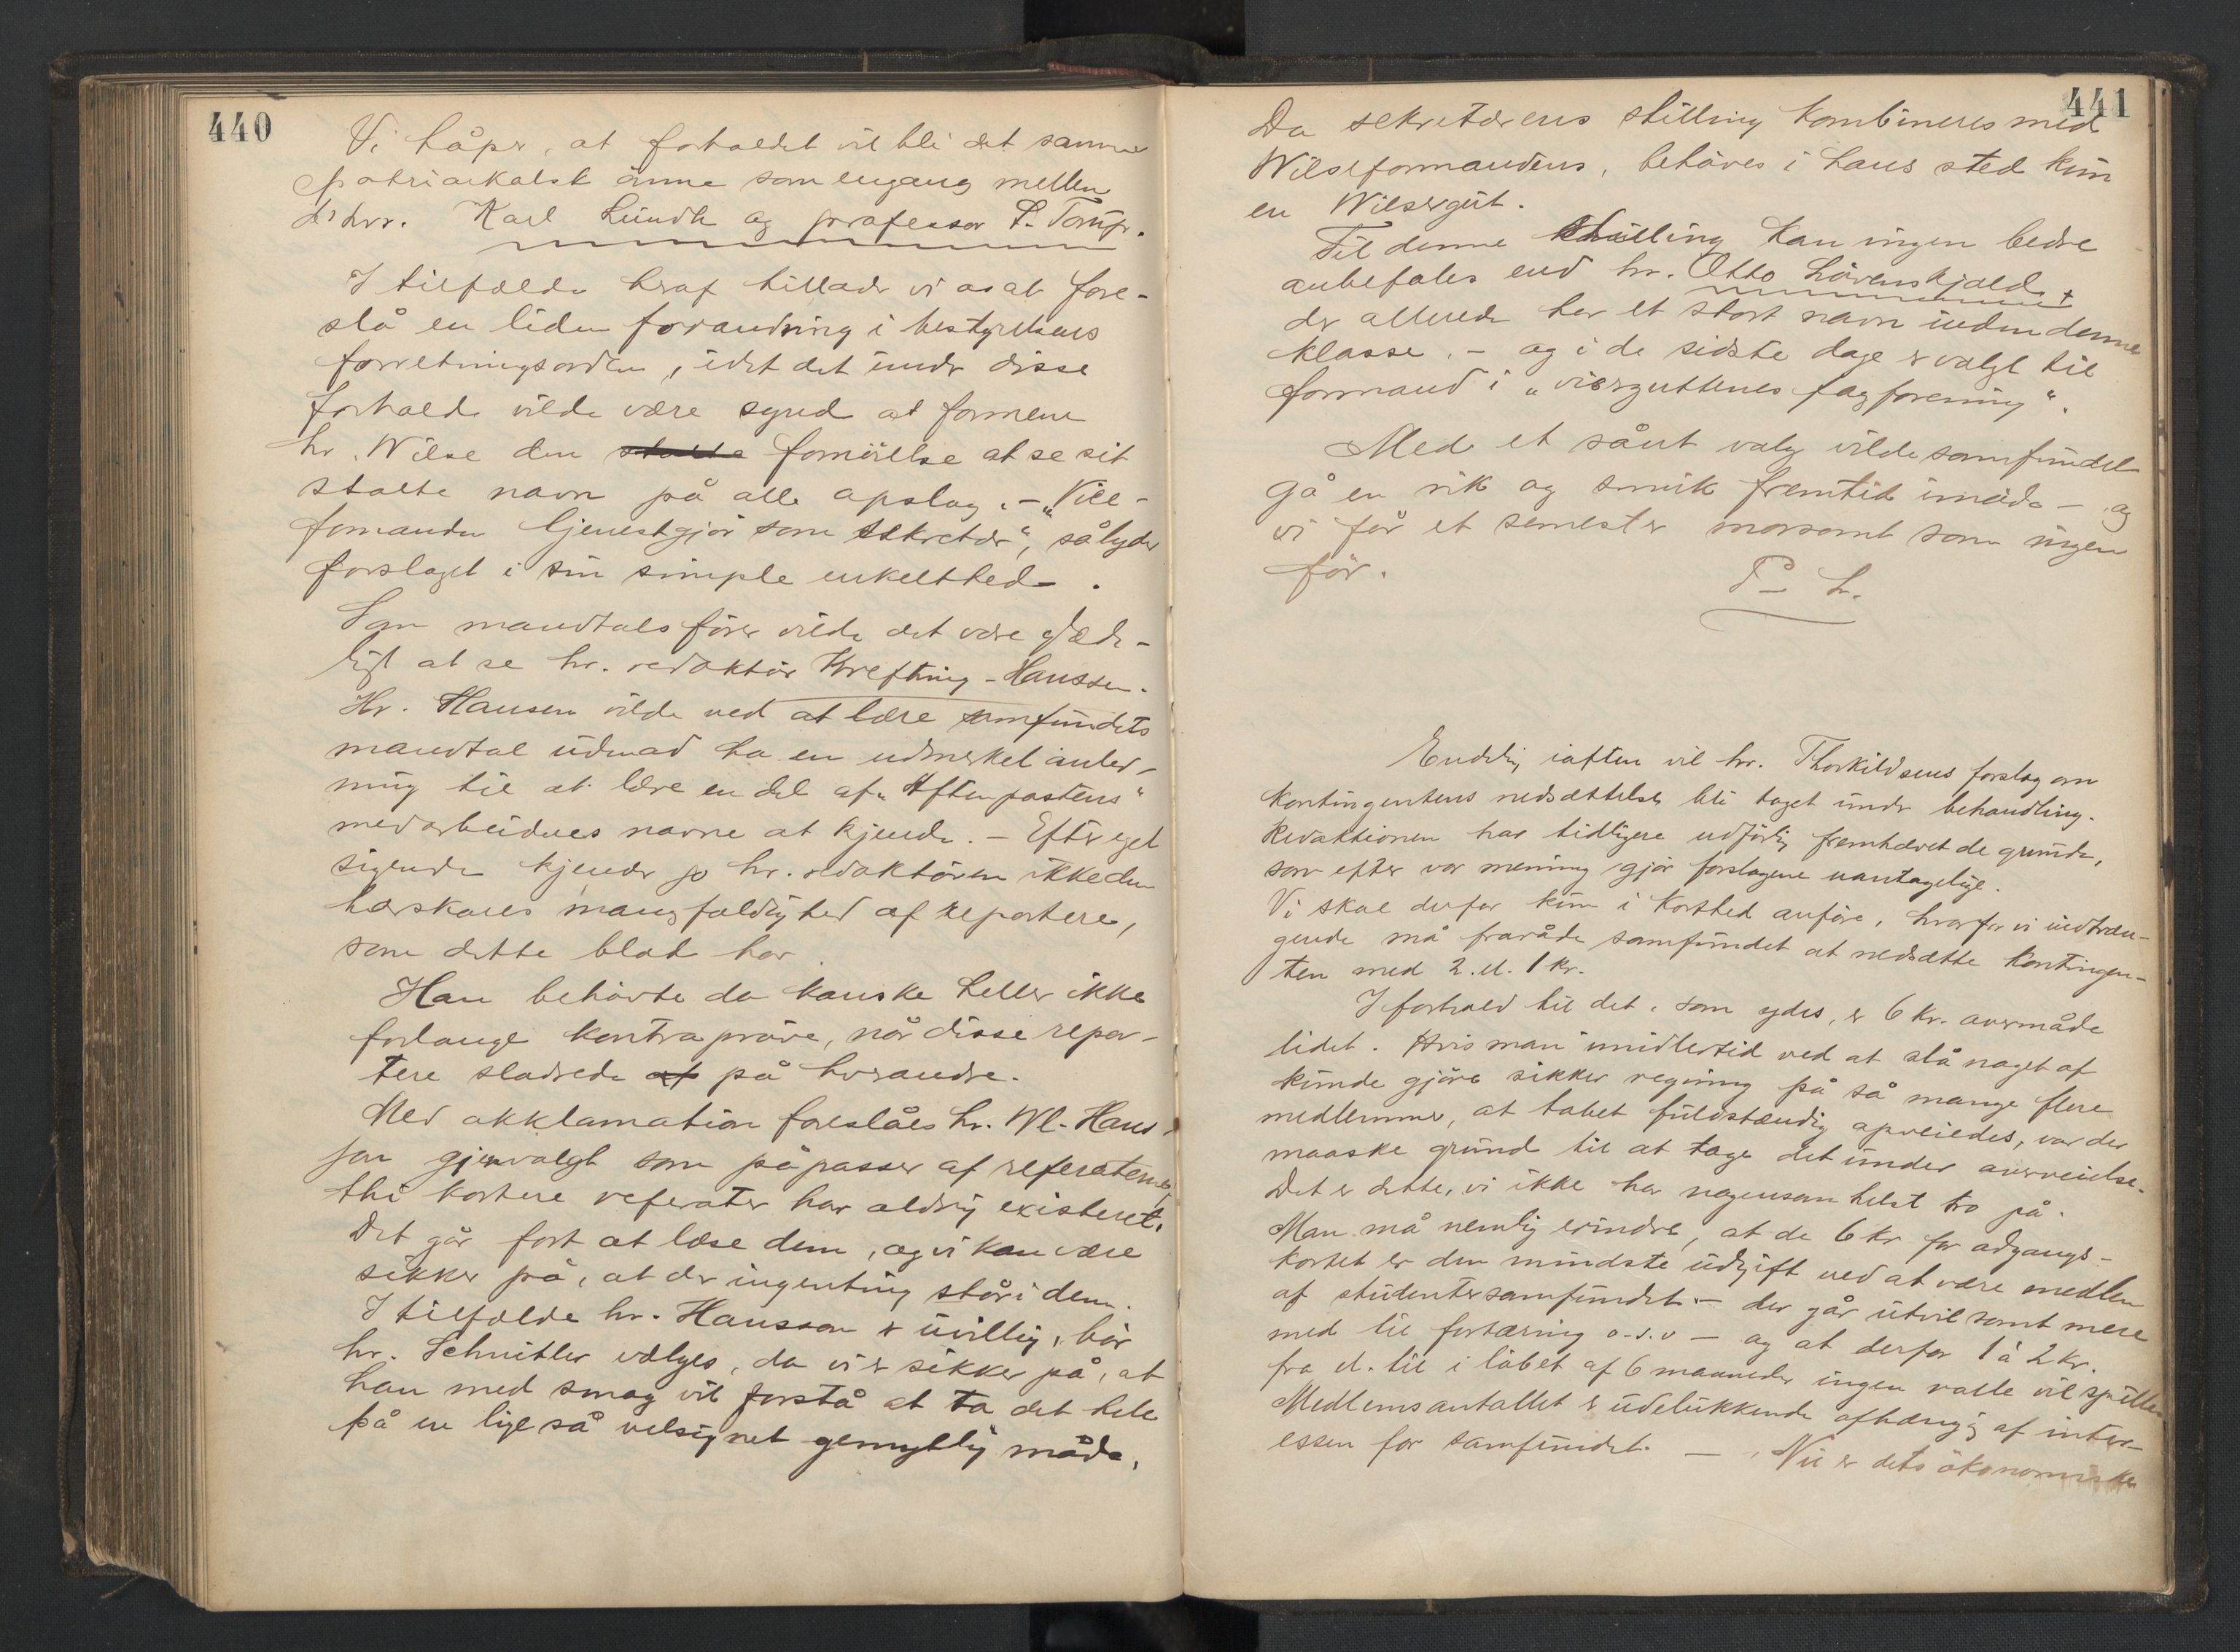 440
Vi håper, at forholdet vil bli det samme
patriarkalsk ømme som engang mellem
d'hrr. Karl Lundh og professor S. Torup.
I tilfælde heraf tillader vi os at fore-
slå en liden forandring i bestyrelsens
forretningsorden, idet det under disse
forhold vilde være synd at formene
hr. Wilse den stolte fornöielse at se sit
stolte navn på alle opslag. – "Vice-
formanden tjenestgjör som sekretær", så lyder
forslaget i sin simple enkelthed.
Som mandtalsförer vilde det være glæde-
ligt at se hr. redaktör Krefting-Hanssen.
Hr. Hansen vilde ved at lære samfundets
mandtal udenad ha en udmerket anled-
ning til at lære en del af "Aftenpostens"
medarbeideres navne at kjende. – Efter eget
sigende kjender jo hr. redaktören ikke den
hærskares mangfoldighed af reportere,
som dette blad har.
Han behövte da kanske heller ikke
forlange kontrapröve, når disse repor-
tere sladrede af på hverandre.
Med akklamation foreslåes hr. Wl. Haus-
son gjenvalgt som påpasser af referaterne,
thi kortere referater har aldrig existeret.
Det går fort at læse dem, og vi kan være
sikker på, at der ingenting står i dem.
I tilfælde hr. Hansson er uvillig, bör
hr. Schnitler vælges, da vi er sikker på, at
han med smag vil forstå at ta det hele
på en lige så velsignet gemytlig måde.
441
Da sekretærens stilling kombineres med
Wilseformandens, behöves i hans sted kun
en Wilsergut.
Til denne stilling kan ingen bedre
anbefales end hr. Otto Lövenskjold,
der allerede har et stort navn inden denne
klasse. – og i de sidste dage er valgt til
formand i "visergutternes fagforening".
Med et sånt valg vilde samfundet
gå en rik og smuk fremtid imöde – og
vi får et semester morsomt som ingen
för.
P– L.
Endelig iaften vil hr. Thorkildsens forslag om
kontingentens nedsættelse bli taget under behandling.
Redaktionen har tidligere udförlig fremhævet de grunde,
som efter vor mening gjör forslagene uantagelige.
Vi skal derfor kun i korthed anföre, hvorfor vi indtræn-
gende må fraråde samfundet at nedsætte kontingen-
ten med 2 el. 1 kr.
I forhold til det, som ydes, er 6 kr. overmåde
lidet. Hvis man imidlertid ved at slå noget af
kunde gjöre sikker regning på så mange flere
medlemmer, at tabet fuldstændig opveiedes, var der
maaske grund til at tage det under overveielse.
Det er dette, vi ikke har nogensomhelst tro på.
Man må nemlig erindre, at de 6 kr for adgangs-
kortet er den mindste udgift ved at være medlem
af studentersamfundet – der går utvilsomt mere
med til fortæring o.s.v – og at derfor 1 à 2 kr.
fra el. til i löbet af 6 maaneder ingen rolle vil spille.
Medlemsantallet er udelukkende afhængig af inter-
essen for samfundet. – Nu er dets ökonomiske